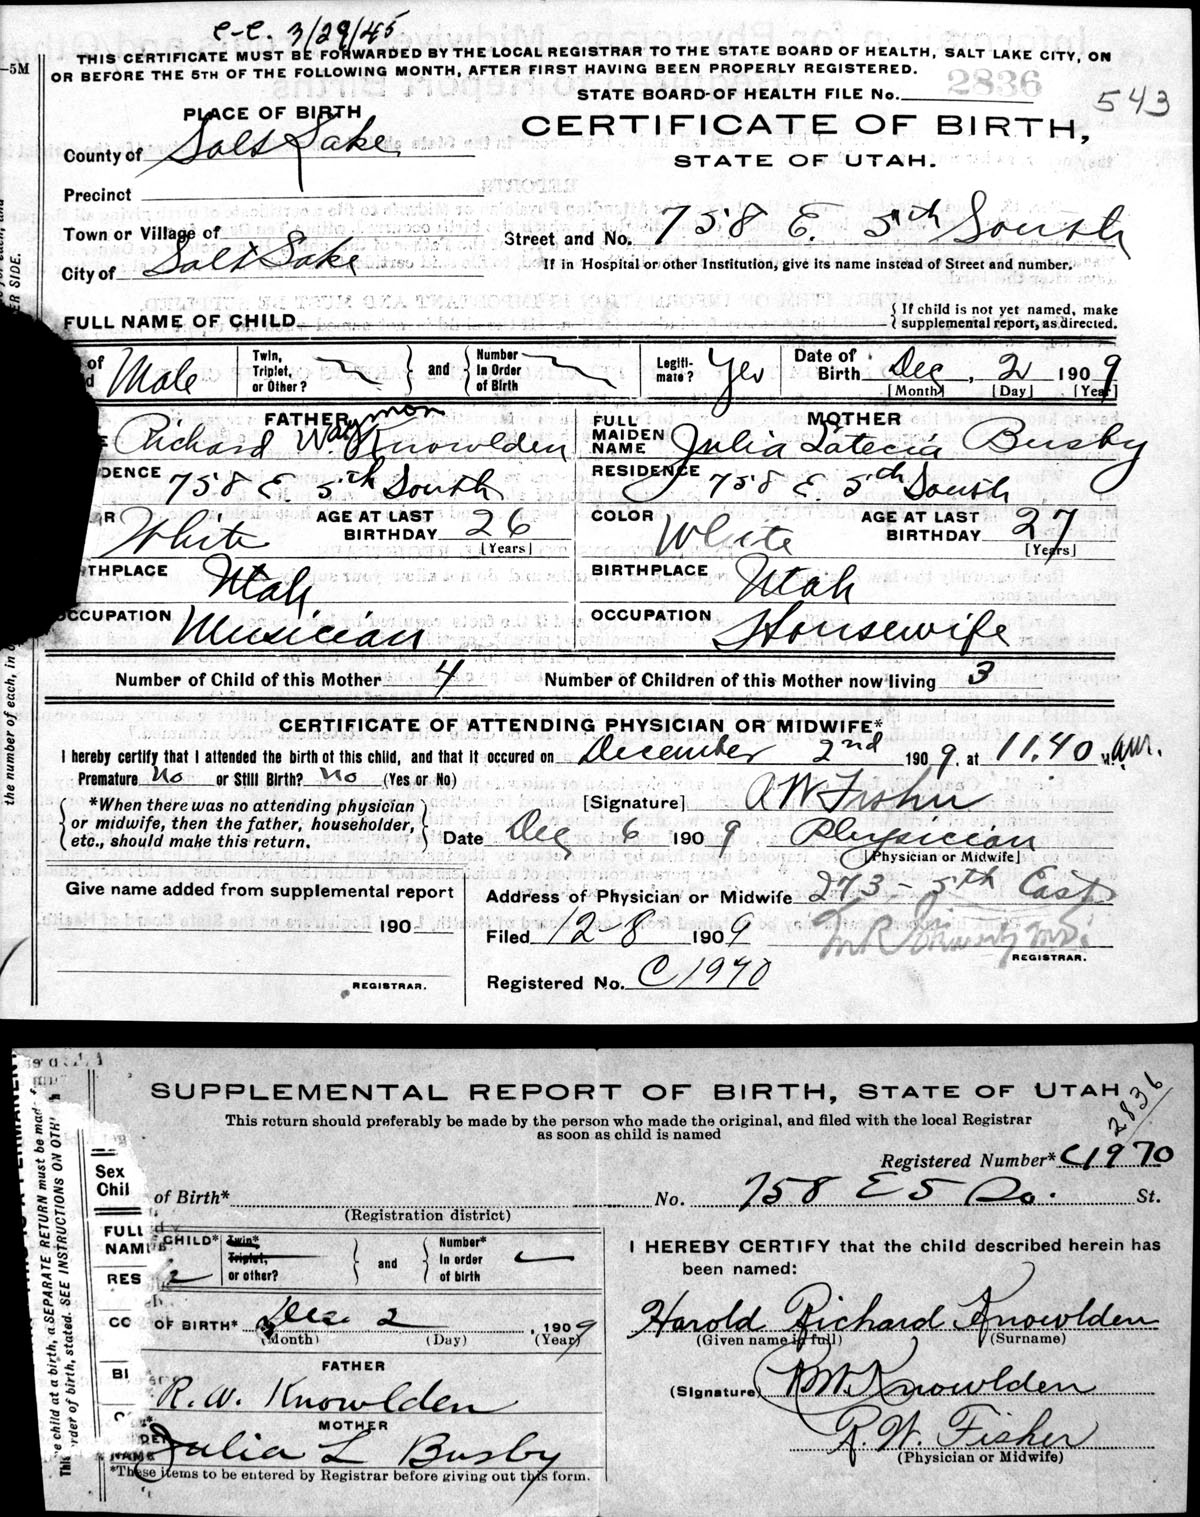 c-c. 3/29/45
THIS CERTIFICATE MUST BE FORWARDED BY THE LOCAL REGISTRAR TO THE STATE BOARD OF HEALTH, SALT LAKE CITY, ON
OR BEFORE THE 5TH OF THE FOLLOWING MONTH, AFTER FIRST HAVING BEEN PROPERLY REGISTERED.
—5M
STATE BOARD OF HEALTH FILE No. 2836
543
PLACE OF BIRTH
CERTIFICATE OF BIRTH,
STATE OF UTAH.
County of Salt Lake
Precinct
Town or Village of
Street and No. 758 E. 5th South
City of Salt Lake
If in Hospital or other Institution, give its name instead of Street and number.
FULL NAME OF CHILD
{ If child is not yet named, make
supplemental report, as directed.
of Male
Twin, Triplet, or Other?
and
Number In Order of Birth
Legiti-mate? Yes
Date of Birth Dec, 2 1909
[Month] [Day] [Year]
FATHER
Richard Waymon W. Knowlden
MOTHER
FULL MAIDEN NAME Julia Latecia Busby
DENCE 758 E. 5th South
RESIDENCE 758 E. 5th South
R White
AGE AT LAST BIRTHDAY 26
[Years]
COLOR White
AGE AT LAST BIRTHDAY 27
[Years]
THPLACE Utah
BIRTHPLACE Utah
OCCUPATION Musician
OCCUPATION Housewife
Number of Child of this Mother 4 Number of Children of this Mother now living 3
CERTIFICATE OF ATTENDING PHYSICIAN OR MIDWIFE*
I hereby certify that I attended the birth of this child, and that it occured on December 2nd 1909. at 11.40 M. am.
Premature No or Still Birth? No (Yes or No)
*When there was no attending physician
or midwife, then the father, householder,
etc., should make this return.
[Signature] A W Fisher
Date Dec 6 1909 Physician
[Physician or Midwife]
Give name added from supplemental report
190
REGISTRAR.
Address of Physician or Midwife 273 - 5th East
Filed 12-8 1909
REGISTRAR.
Registered No. C 1970
the number of each, in o
ER SIDE.
SUPPLEMENTAL REPORT OF BIRTH, STATE OF UTAH
2836
This return should preferably be made by the person who made the original, and filed with the local Registrar
as soon as child is named
Registered Number* C1970
of Birth* No. 758 E 5 So. St.
(Registration district)
Sex
Chil
FULL
NAM
RES
CO
BI
CHILD*
Twin*
Triplet,
or other?
and
Number*
In order
of birth
OF BIRTH* Dec. 2, 1909
(Month) (Day) (Year)
FATHER
R. W. Knowlden
MOTHER
Julia L Busby
NAME
*These items to be entered by Registrar before giving out this form.
I HEREBY CERTIFY that the child described herein has
been named:
Harold Richard Knowlden
(Given name in full) (Surname)
(Signature) R.W. Knowlden
R. W. Fisher
(Physician or Midwife)
e child at a birth, a SEPARATE RETURN must be made
rder of birth, stated. SEE INSTRUCTIONS ON OTH